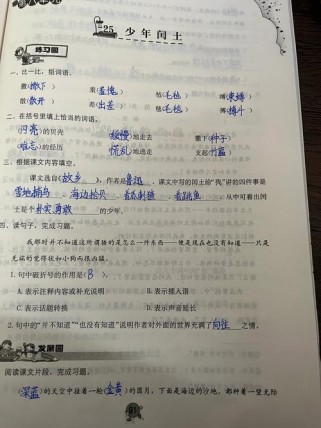 25 少年闰土
练习园
一、比一比,组词语。
撒(撒下) 羞(羞愧) 毡(毛毡) 缚(束缚)
散(散开) 差(出差) 毯(毛毯) 搏(搏斗)
二、在括号里填上恰当的词语。
(闪亮)的贝壳 (缓慢)地走去 撒下(种子)
(难忘)的经历 (慌乱)地逃走 支起(竹匾)
三、根据课文内容填空。
课文选自(故乡),作者是鲁迅。课文中写的闰土的“我”讲的四件事是
雪地捕鸟、海边拾贝、看瓜刺猹、看跳鱼。从中可看出闰
土是个朴实勇敢的少年。
四、读句子,完成习题。
我那时并不知道这所谓猹的是怎么一件东西——便是现在也没有知道——只是
无端的觉得状如小狗而很凶猛。
1. 句中破折号的作用是(B)。
A. 表示注释内容或补充说明 B. 表示插入语
C. 表示话题转换 D. 表示声音延长
2. 句中的“并不知道”“也没有知道”说明作者对外面的世界充满了向往之情。
发展园
阅读课文片段,完成习题。
(深蓝)的天空中挂着一轮(金黄)的圆月,下面是海边的沙地,都种着一望无际